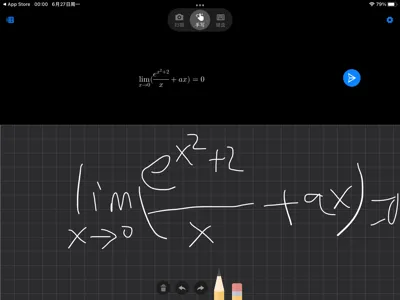 App Store 00:00 6月27日周一 79%
扫描 手写 键盘
lim_{x→0}(\frac{e^{x^2+2}}{x} + ax) = 0
lim_{x→0}(\frac{e^{x^2+2}}{x} + ax) = 0